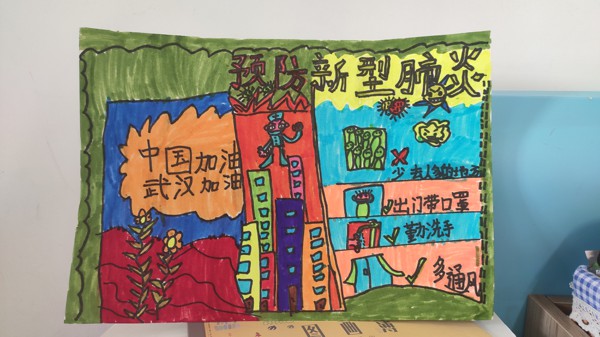 预防新型肺炎
中国加油
武汉加油
少去人多的地方
出门带口罩
勤洗手
多通风